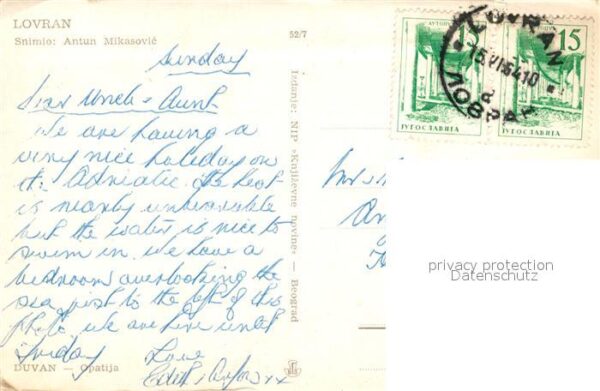 LOVRAN
Snimio: Antun Mikasovič
52/7
Sunday
Dear Uncle & Aunt
We are having a
very nice holiday on
the Adriatic the heat
is nearly unbearable
but the water is nice to
swim in we have a
bedroom overlooking the
sea just to the left of this
photo we are here until
Friday Love
Edith
xx
DUVAN — Opatija
Izdanje: NIP »Književne novine« — Beograd
15
15
ЈУГОСЛАВИЈА
ЈУГОСЛАВИЈА
LOVRAN
ЛОВРАН
privacy protection
Datenschutz